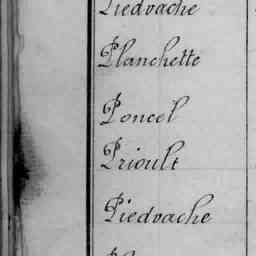 Piedvache
Planchette
Poncel
Prioult
Piedvache